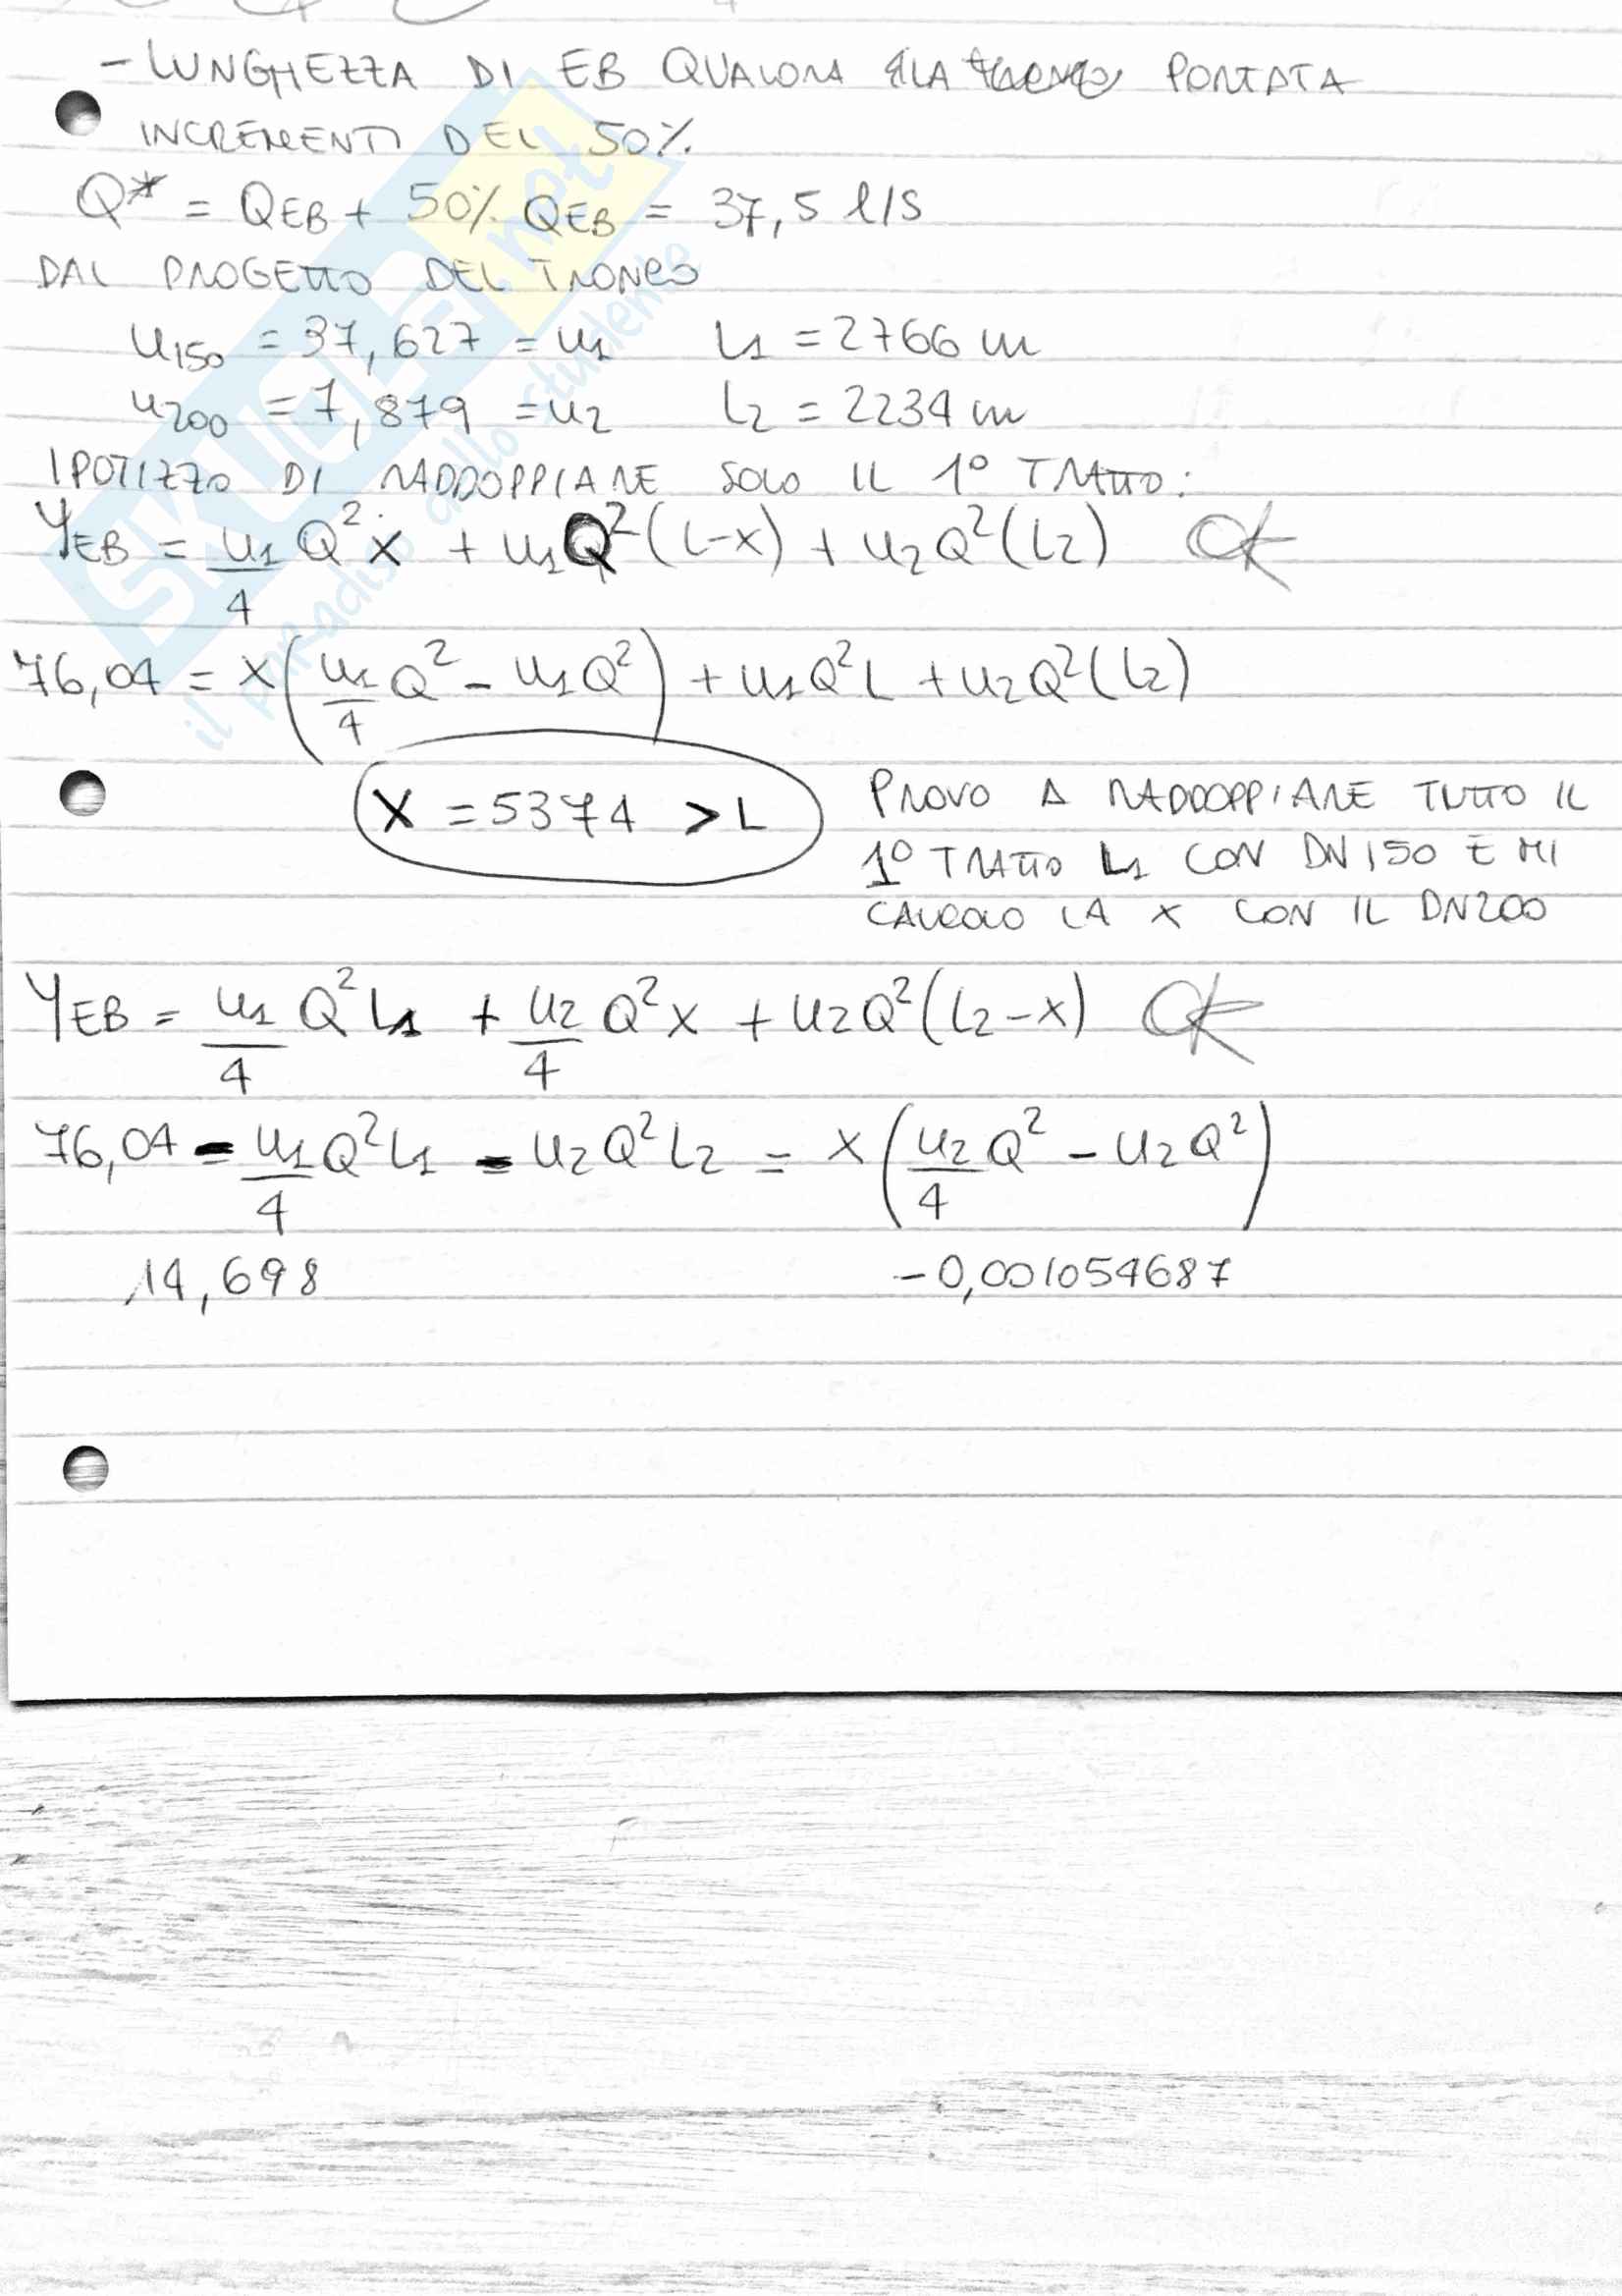 - LUNGHEZZA DI EB QUALORA LA PORTATA
INCREMENTI DEL 50%
Q* = QEB + 50% QEB = 37,5 l/s
DAL PROGETTO DEL TRONCO
u150 = 37,627 = u1 L1 = 2766 m
u200 = 7,879 = u2 L2 = 2234 m
IPOTIZZO DI RADDOPPIARE SOLO IL 1° TRATTO:
YEB = u1/4 Q² x + u1Q²(L-x) + u2Q²(L2) OK
76,04 = x(u1/4 Q² - u1Q²) + u1Q²L + u2Q²(L2)
X = 5374 > L
PROVO A RADDOPPIARE TUTTO IL
1° TRATTO L1 CON DN150 E MI
CALCOLO LA X CON IL DN200
YEB = u1/4 Q²L1 + u2/4 Q²x + u2Q²(L2-x) OK
76,04 - u1/4 Q²L1 - u2Q²L2 = x(u2/4 Q² - u2Q²)
14,698 -0,001054687
SKUOLA.net
il paradiso dello studente